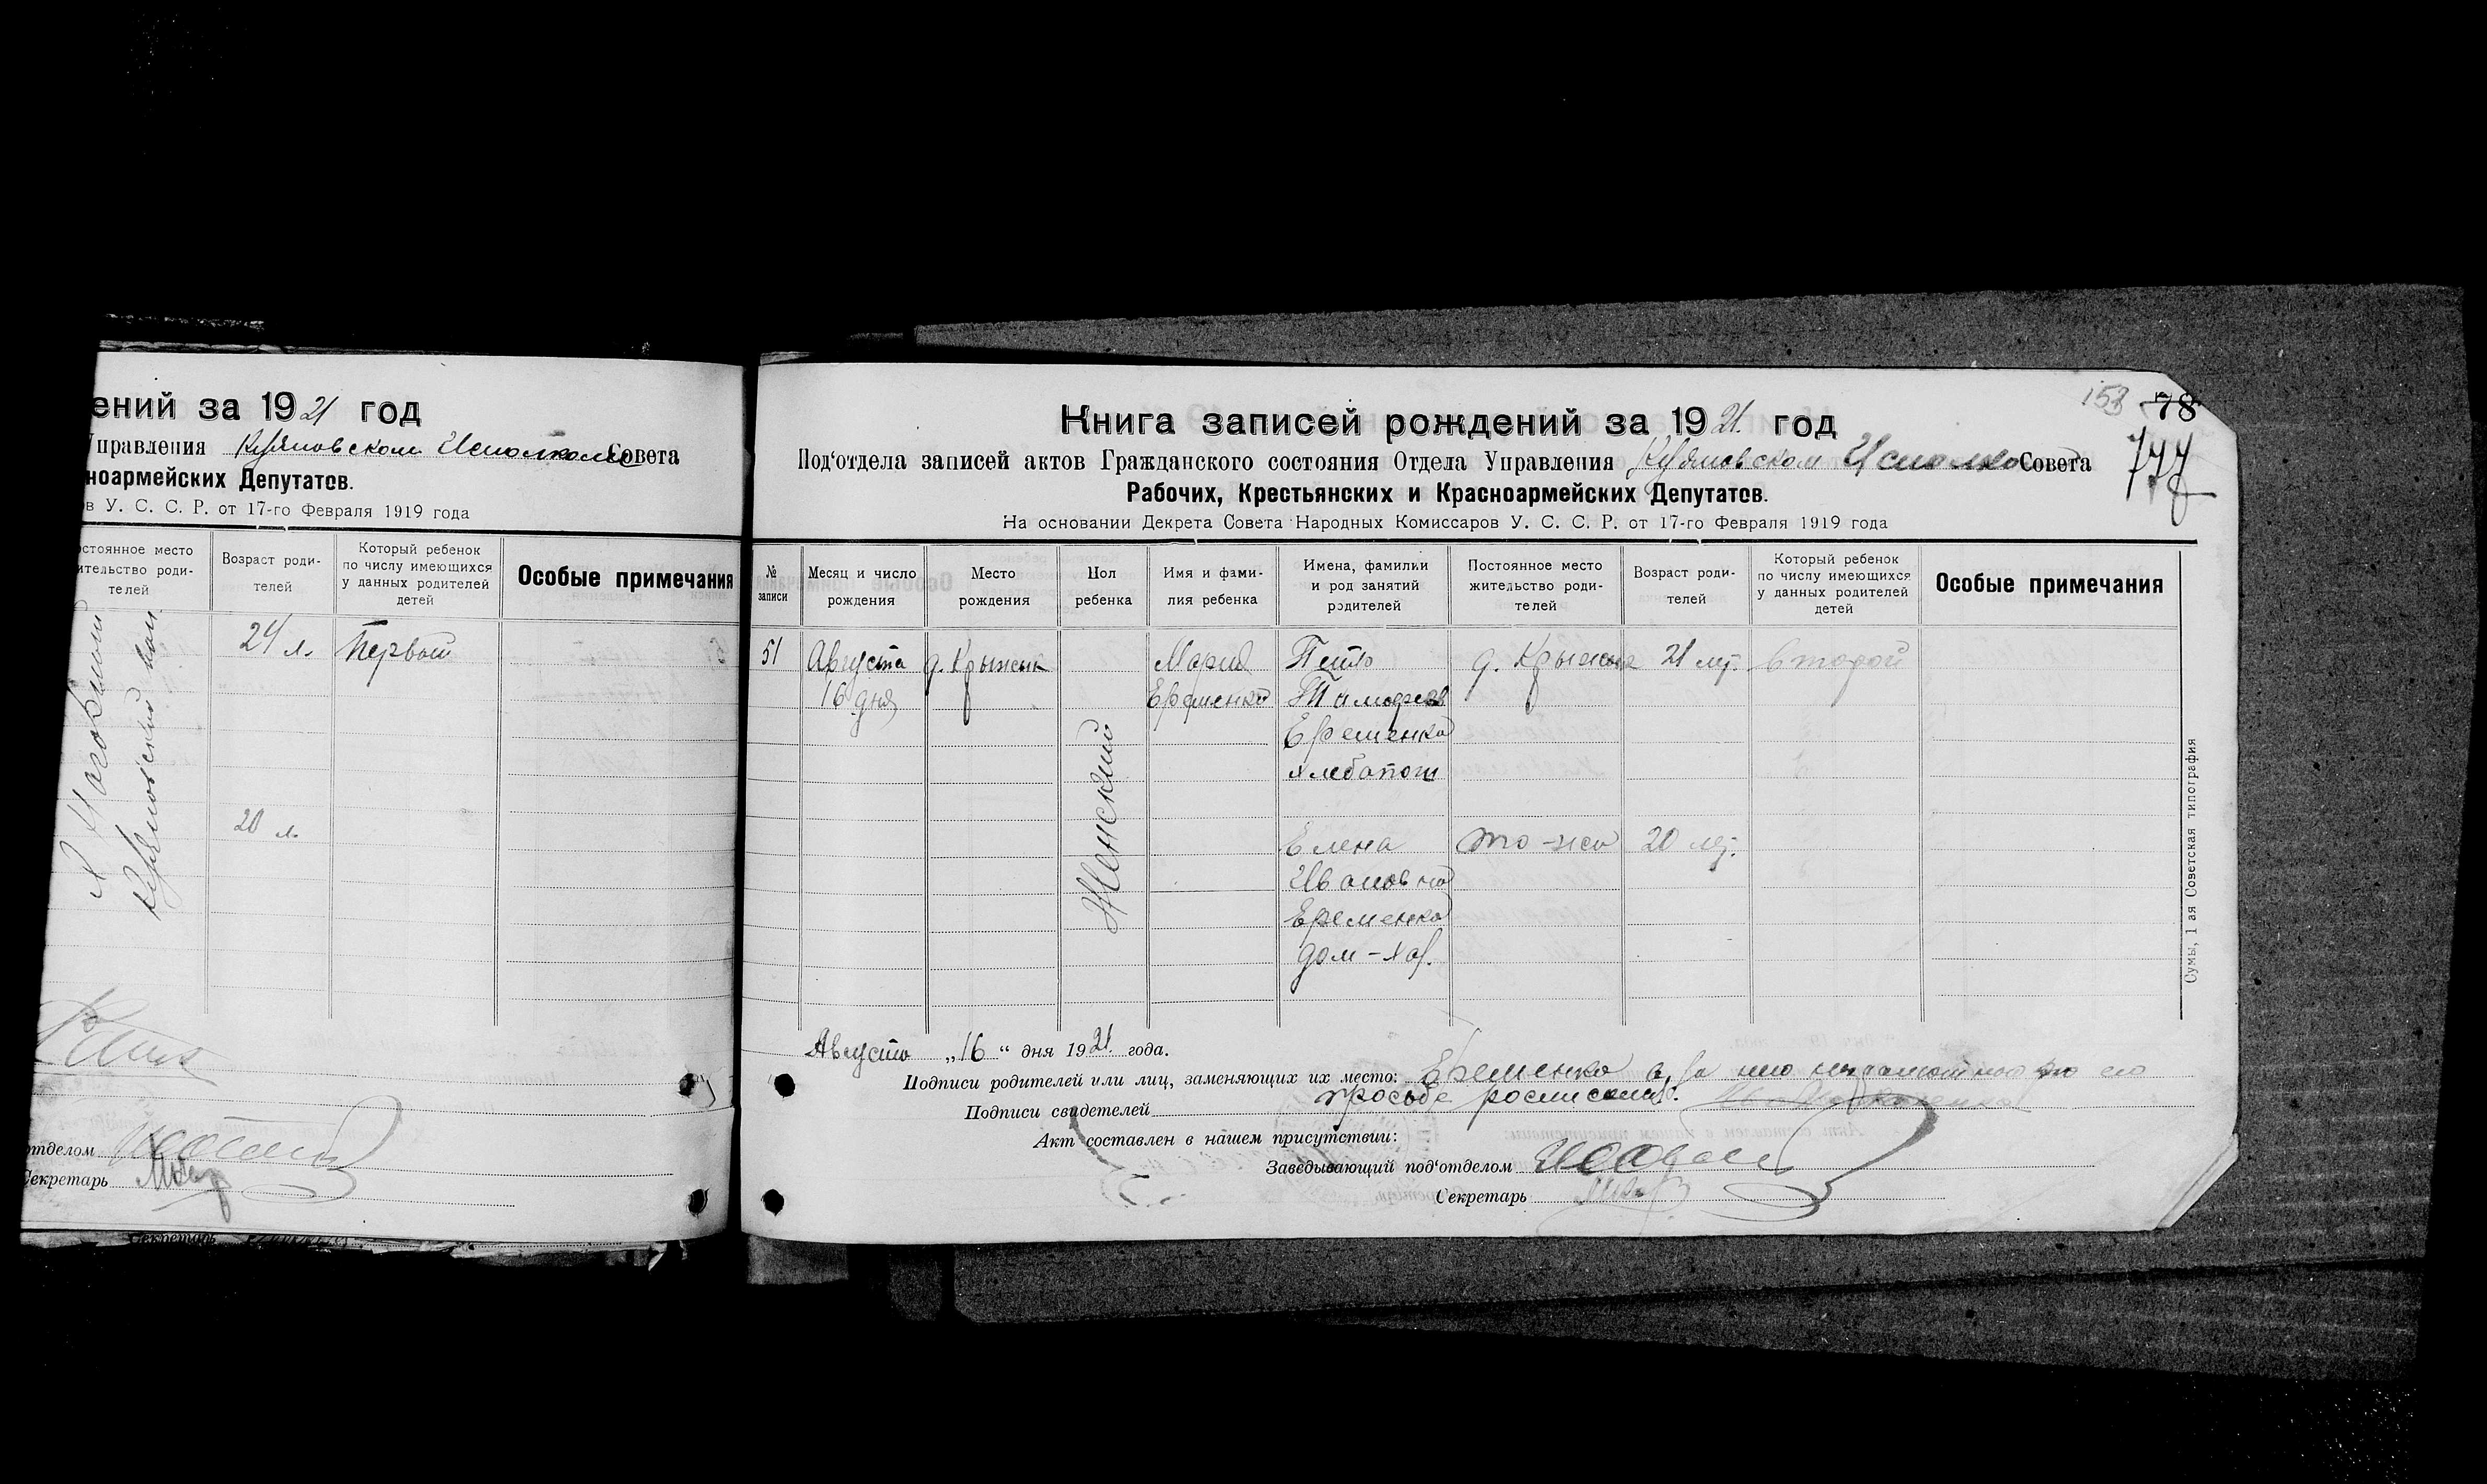 ений за 1921 год
Управления Куяновском Исполкоме Совета
ноармейских Депутатов.
в У. С. С. Р. от 17-го Февраля 1919 года
остоянное место
ительство роди-
телей
Возраст роди-
телей
Который ребенок
по числу имеющихся
у данных родителей
детей
Особые примечания
24 л.
Первый
20 л.
отделом
Секретарь
Секретарь
153 78
777
Книга записей рождений за 1921. год
Под‘отдела записей актов Гражданского состояния Отдела Управления Куяновском Исполко Совета
Рабочих, Крестьянских и Красноармейских Депутатов.
На основании Декрета Совета Народных Комиссаров У. С. С. Р. от 17-го Февраля 1919 года
№
записи
Месяц и число
рождения
Место
рождения
Пол
ребенка
Имя и фами-
лия ребенка
Имена, фамилии
и род занятий
родителей
Постоянное место
жительство роди-
телей
Возраст роди-
телей
Который ребенок
по числу имеющихся
у данных родителей
детей
Особые примечания
51
Августа
16 дня
д. Крыжик
Женский
Мария
Еременко
Петро
Еременко
хлебопош
Елена
Ивановна
Еременко
дом-хоз.
д. Крыжик
то-же
21 лет.
20 лет.
Второй
Августа „16“ дня 1921. года.
Подписи родителей или лиц, заменяющих их место: Еременко а за него неграмотного по его
просьбе росписался:
Подписи свидетелей
Акт составлен в нашем присутствии:
Заведывающий под‘отделом
Секретарь
Сумы, 1 ая Советская типография